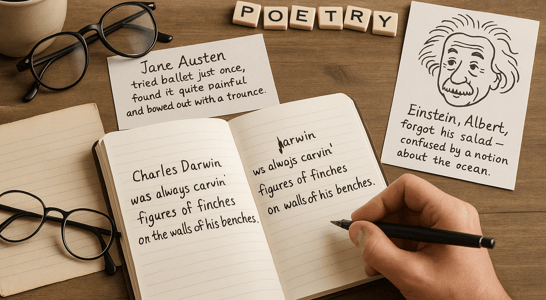 POETRY
Jane Austen
tried ballet just once,
found it quite painful
and bowed out with a trounce.
Einstein, Albert,
forgot his salad –
confused by a notion
about the ocean.
Charles Darwin
was always carvin'
figures of finches
on the walls of his benches.
Darwin
ws alwojs carvin'
figures of finches
on walls of his benches.